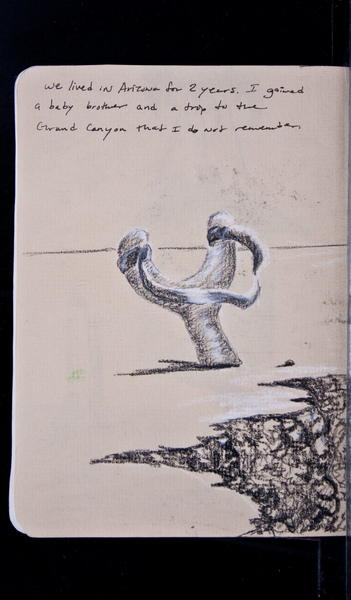 We lived in Arizona for 2 years. I gained
a baby brother and a trip to the
Grand Canyon that I do not remember.